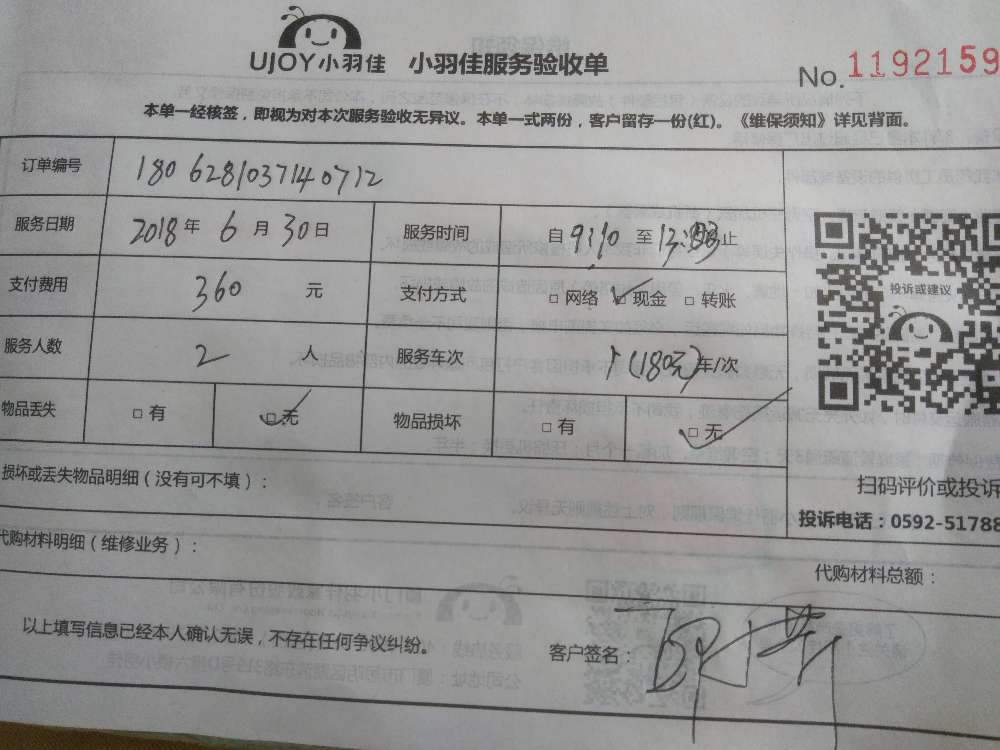 UJOY小羽佳 小羽佳服务验收单
No. 1192159
本单一经核签，即视为对本次服务验收无异议。本单一式两份，客户留存一份(红)。《维保须知》详见背面。
订单编号 1806281037140712
服务日期 2018 年 6 月 30 日 服务时间 自 9:10 至 止
支付费用 360 元 支付方式 □ 网络 □ 现金 □ 转账
投诉或建议
服务人数 2 人 服务车次 1 (180元) 车/次
物品丢失 □ 有 □ 无 物品损坏 □ 有 □ 无
损坏或丢失物品明细（没有可不填）：
扫码评价或投诉
投诉电话：0592-51788
代购材料明细（维修业务）：
代购材料总额：
以上填写信息已经本人确认无误，不存在任何争议纠纷。 客户签名：